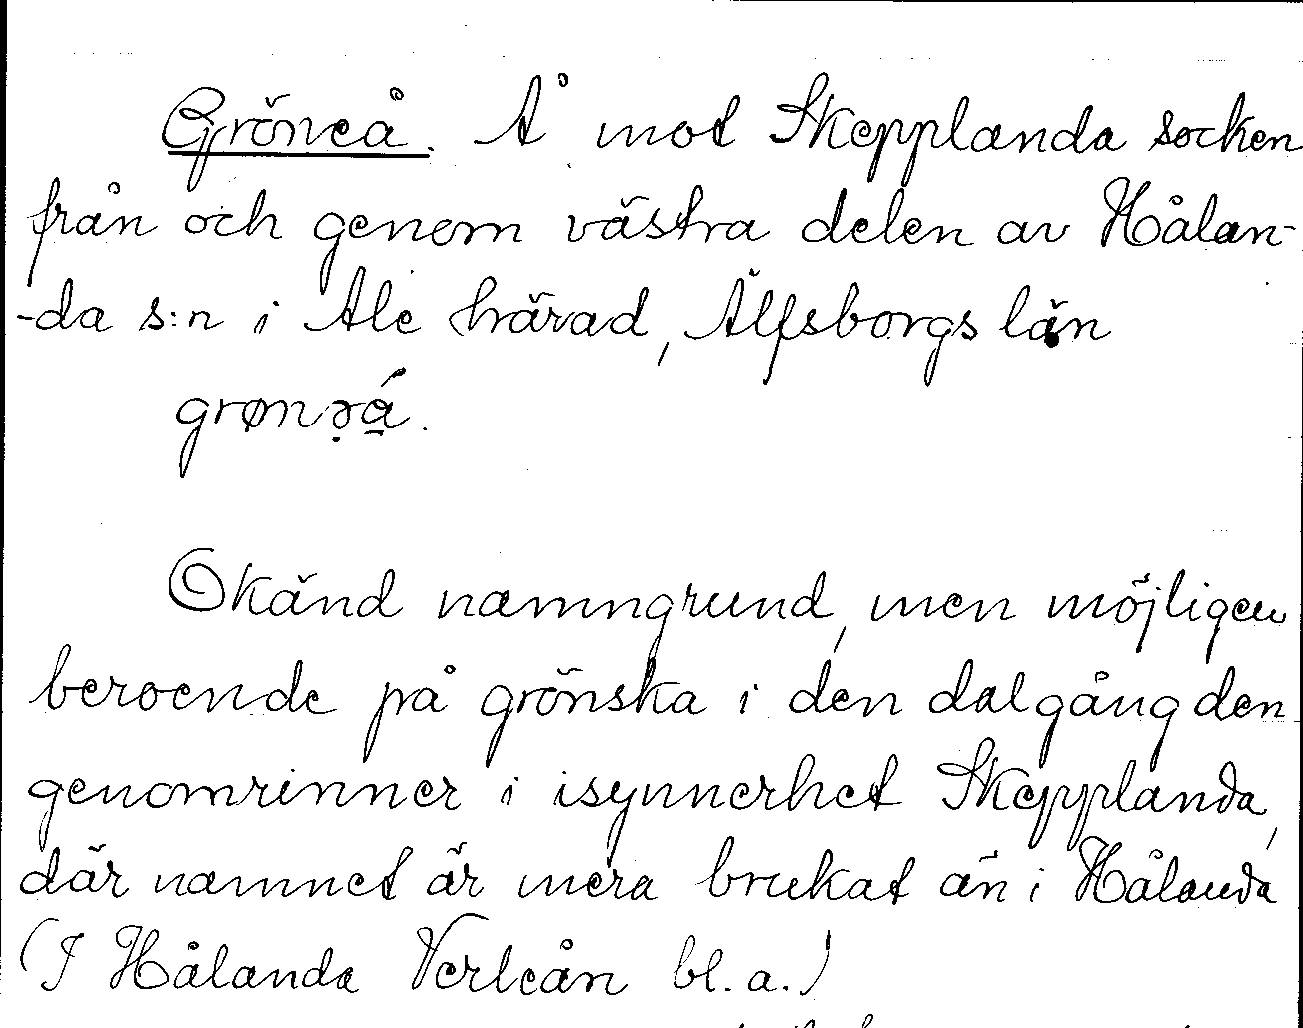 Gröneå. Å mot Skepplanda socken
från och genom västra delen av Hålan-
-da s:n i Ale härad, Älfsborgs län
grønə̣á̱.
Okänd namngrund, men möjligen
beroende på grönska i den dalgång den
genomrinner i isynnerhet Skepplanda,
där namnet är mera brukat än i Hålanda
(I Hålanda Verleån bl. a.)